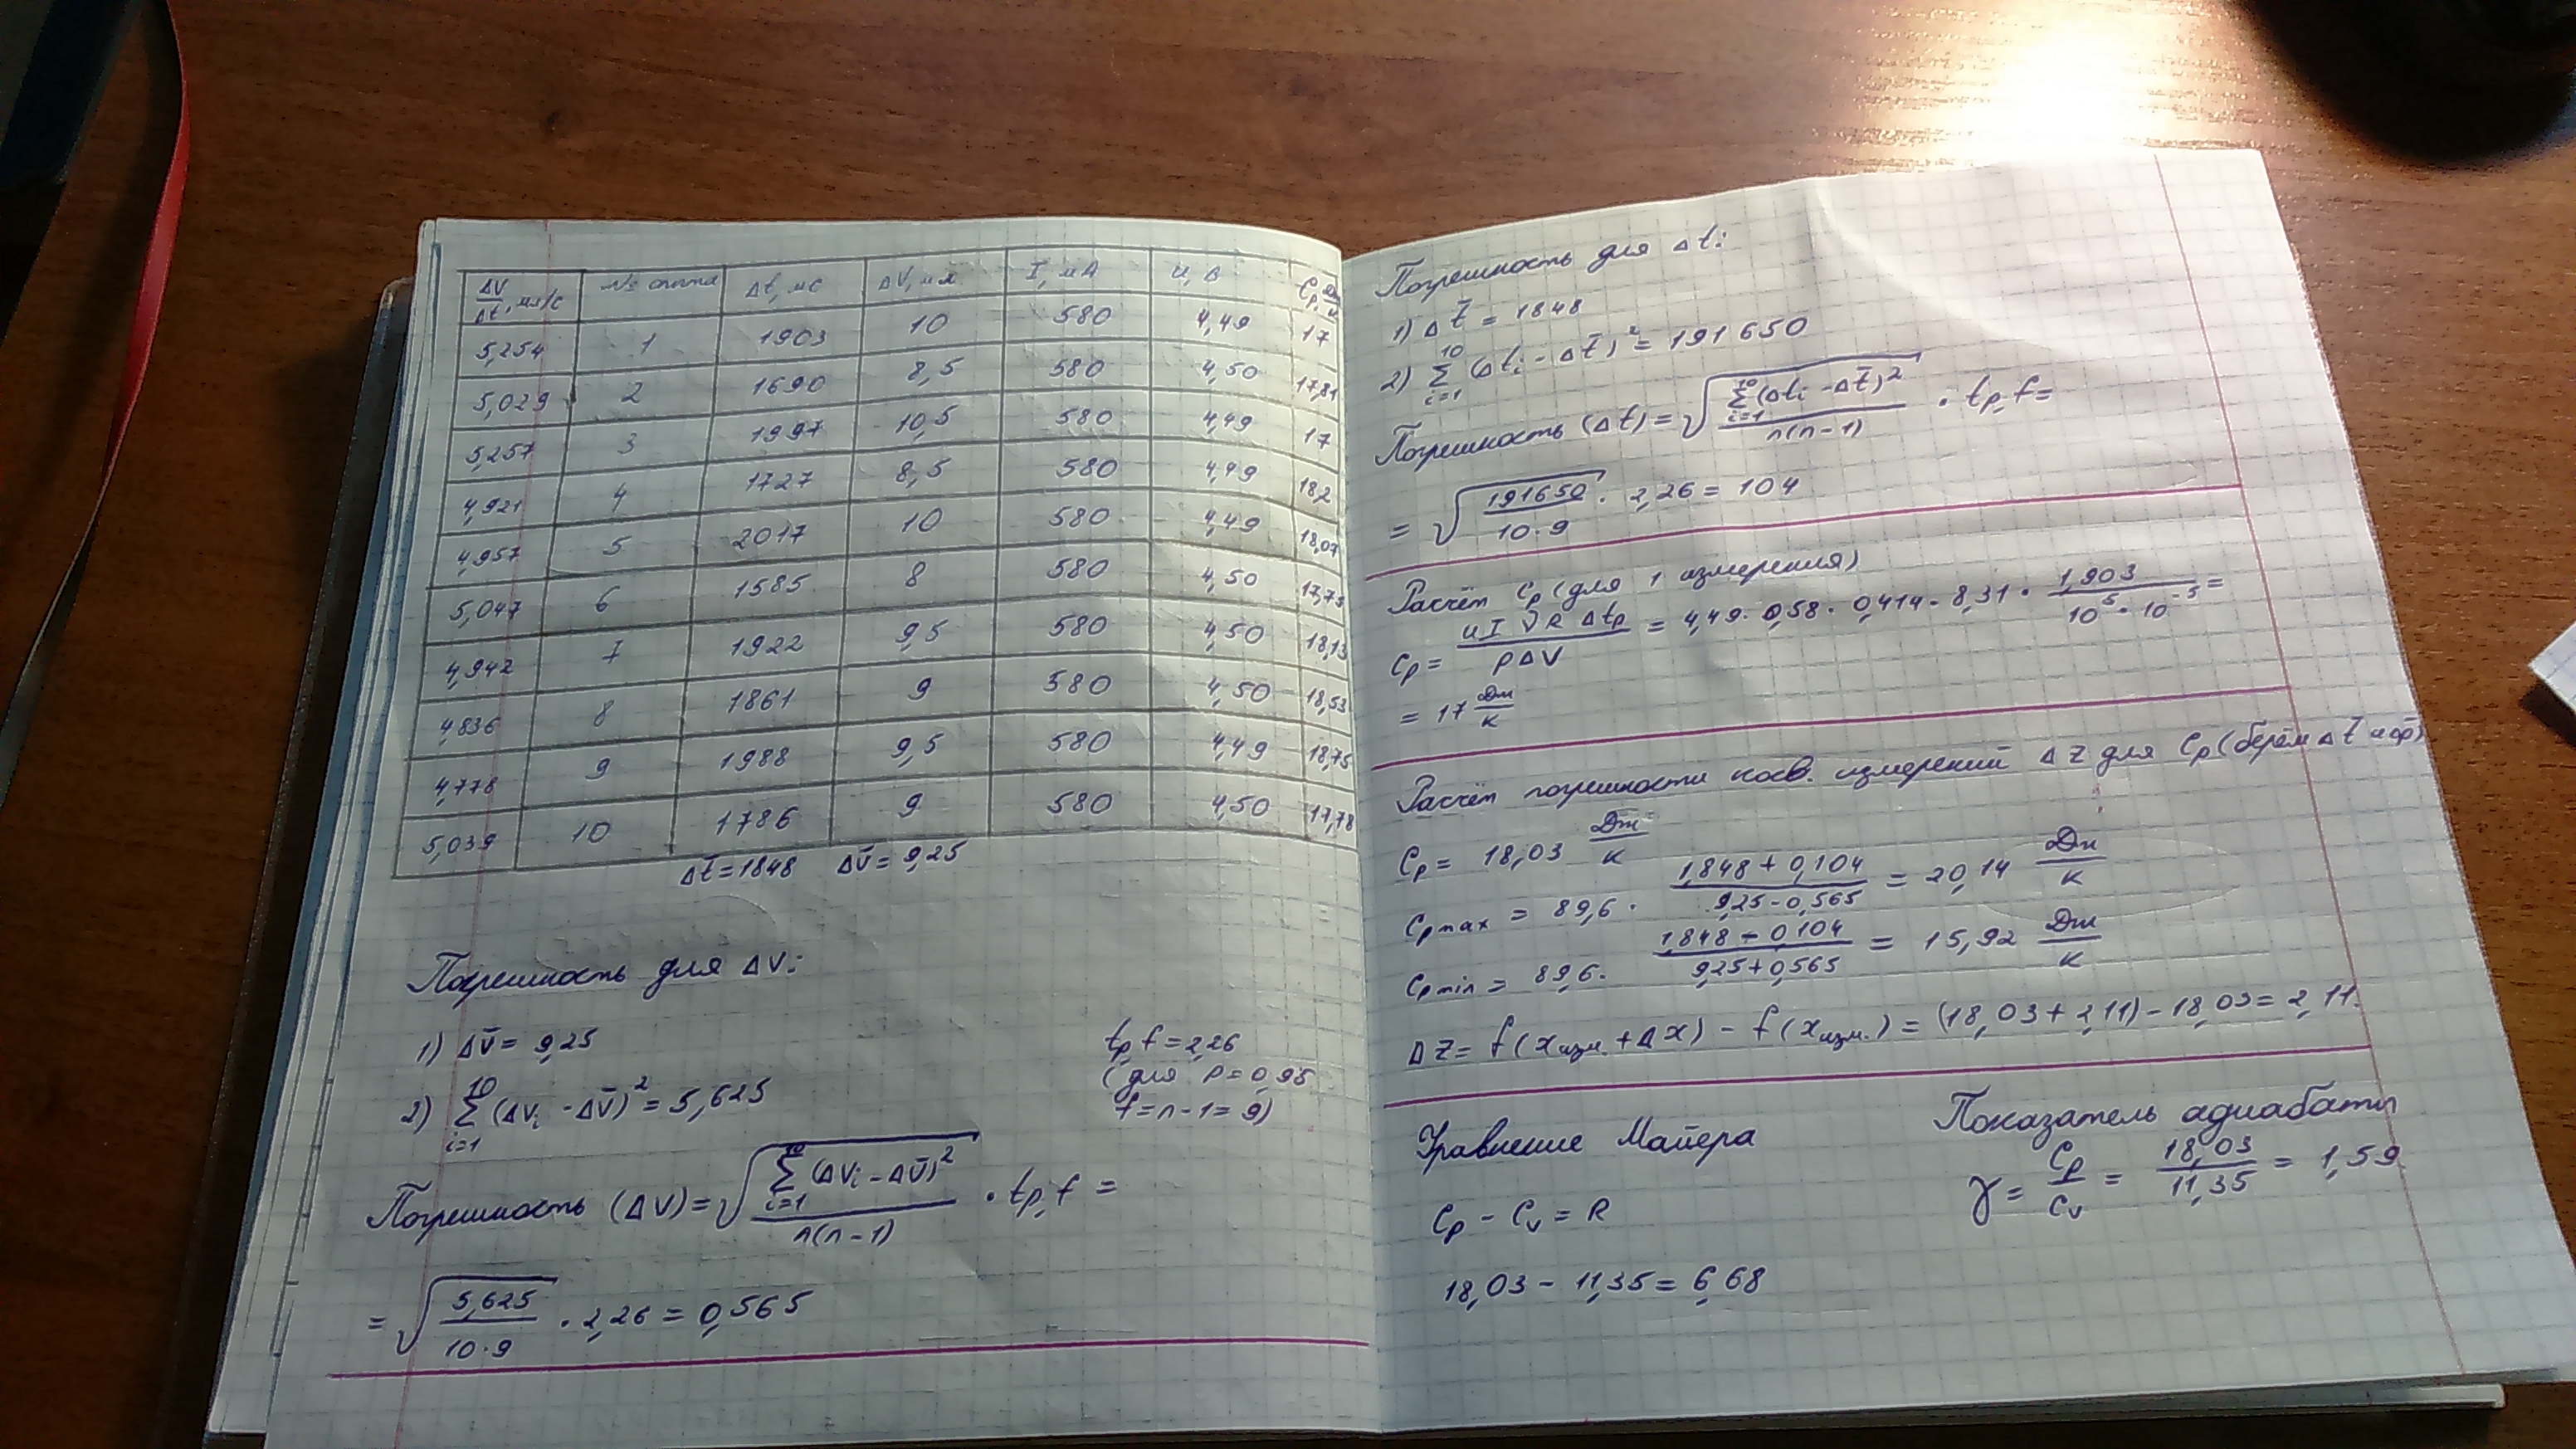 ΔV/Δt, мл/с № опыта Δt, мс ΔV, мл I, мА U, В Cp, Дж/К
5,254 1 1903 10 580 4,49 17
5,029 2 1690 8,5 580 4,50 17,81
5,257 3 1997 10,5 580 4,49 17
4,921 4 1727 8,5 580 4,49 18,2
4,957 5 2017 10 580 4,49 18,07
5,047 6 1585 8 580 4,50 17,75
4,942 7 1922 9,5 580 4,50 18,13
4,836 8 1861 9 580 4,50 18,53
4,778 9 1988 9,5 580 4,49 18,75
5,039 10 1786 9 580 4,50 17,78
Δt̄ = 1848 ΔV̄ = 9,25
Погрешность для ΔV:
1) ΔV̄ = 9,25
2) Σ(i=1..10) (ΔVi - ΔV̄)² = 5,625
tp,f = 2,26
(для p = 0,95
f = n-1 = 9)
Погрешность (ΔV) = √(Σ(i=1..10) (ΔVi - ΔV̄)² / n(n-1)) · tp,f =
= √(5,625 / 10·9) · 2,26 = 0,565
Погрешность для Δt:
1) Δt̄ = 1848
2) Σ(i=1..10) (Δti - Δt̄)² = 191650
Погрешность (Δt) = √(Σ(i=1..10) (Δti - Δt̄)² / n(n-1)) · tp,f =
= √(191650 / 10·9) · 2,26 = 104
Расчёт Cp (для 1 измерения)
Cp = UIνRΔtp / pΔV = 4,49 · 0,58 · 0,414 · 8,31 · 1,903 / 10⁵ · 10⁻⁵ =
= 17 Дж/К
Расчёт погрешности косв. измерений Δz для Cp (берём Δt̄ и Δv̄)
Cp = 18,03 Дж/К
Cp max = 89,6 · (1,848 + 0,104) / (9,25 - 0,565) = 20,14 Дж/К
Cp min = 89,6 · (1,848 - 0,104) / (9,25 + 0,565) = 15,92 Дж/К
Δz = f(xизм. + Δx) - f(xизм.) = (18,03 + 2,11) - 18,03 = 2,11.
Уравнение Майера
Cp - Cv = R
18,03 - 11,35 = 6,68
Показатель адиабаты
γ = Cp/Cv = 18,03/11,35 = 1,59